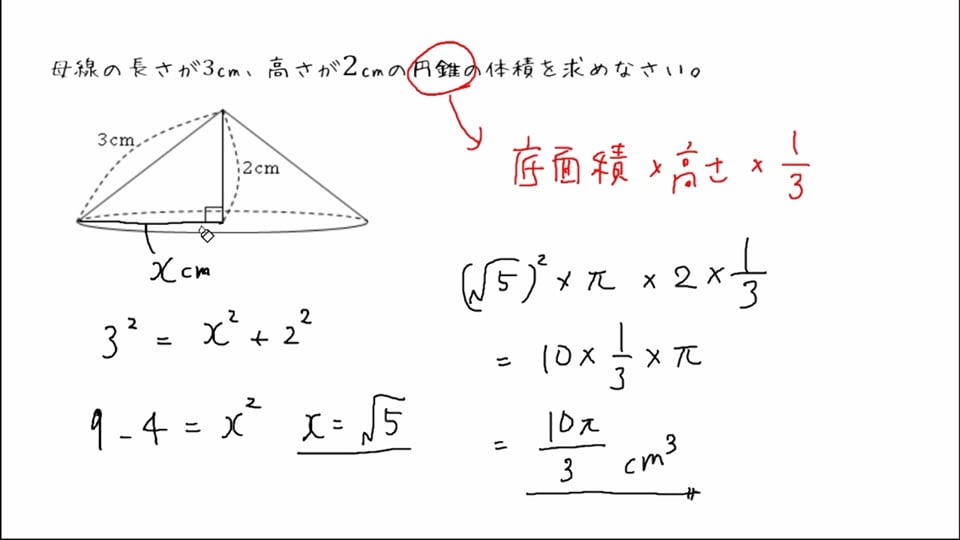 母線の長さが3cm、高さが2cmの円錐の体積を求めなさい。
3cm
2cm
x cm
底面積 × 高さ × 1/3
3² = x² + 2²
9 - 4 = x² x = √5
(√5)² × π × 2 × 1/3
= 10 × 1/3 × π
= 10π/3 cm³